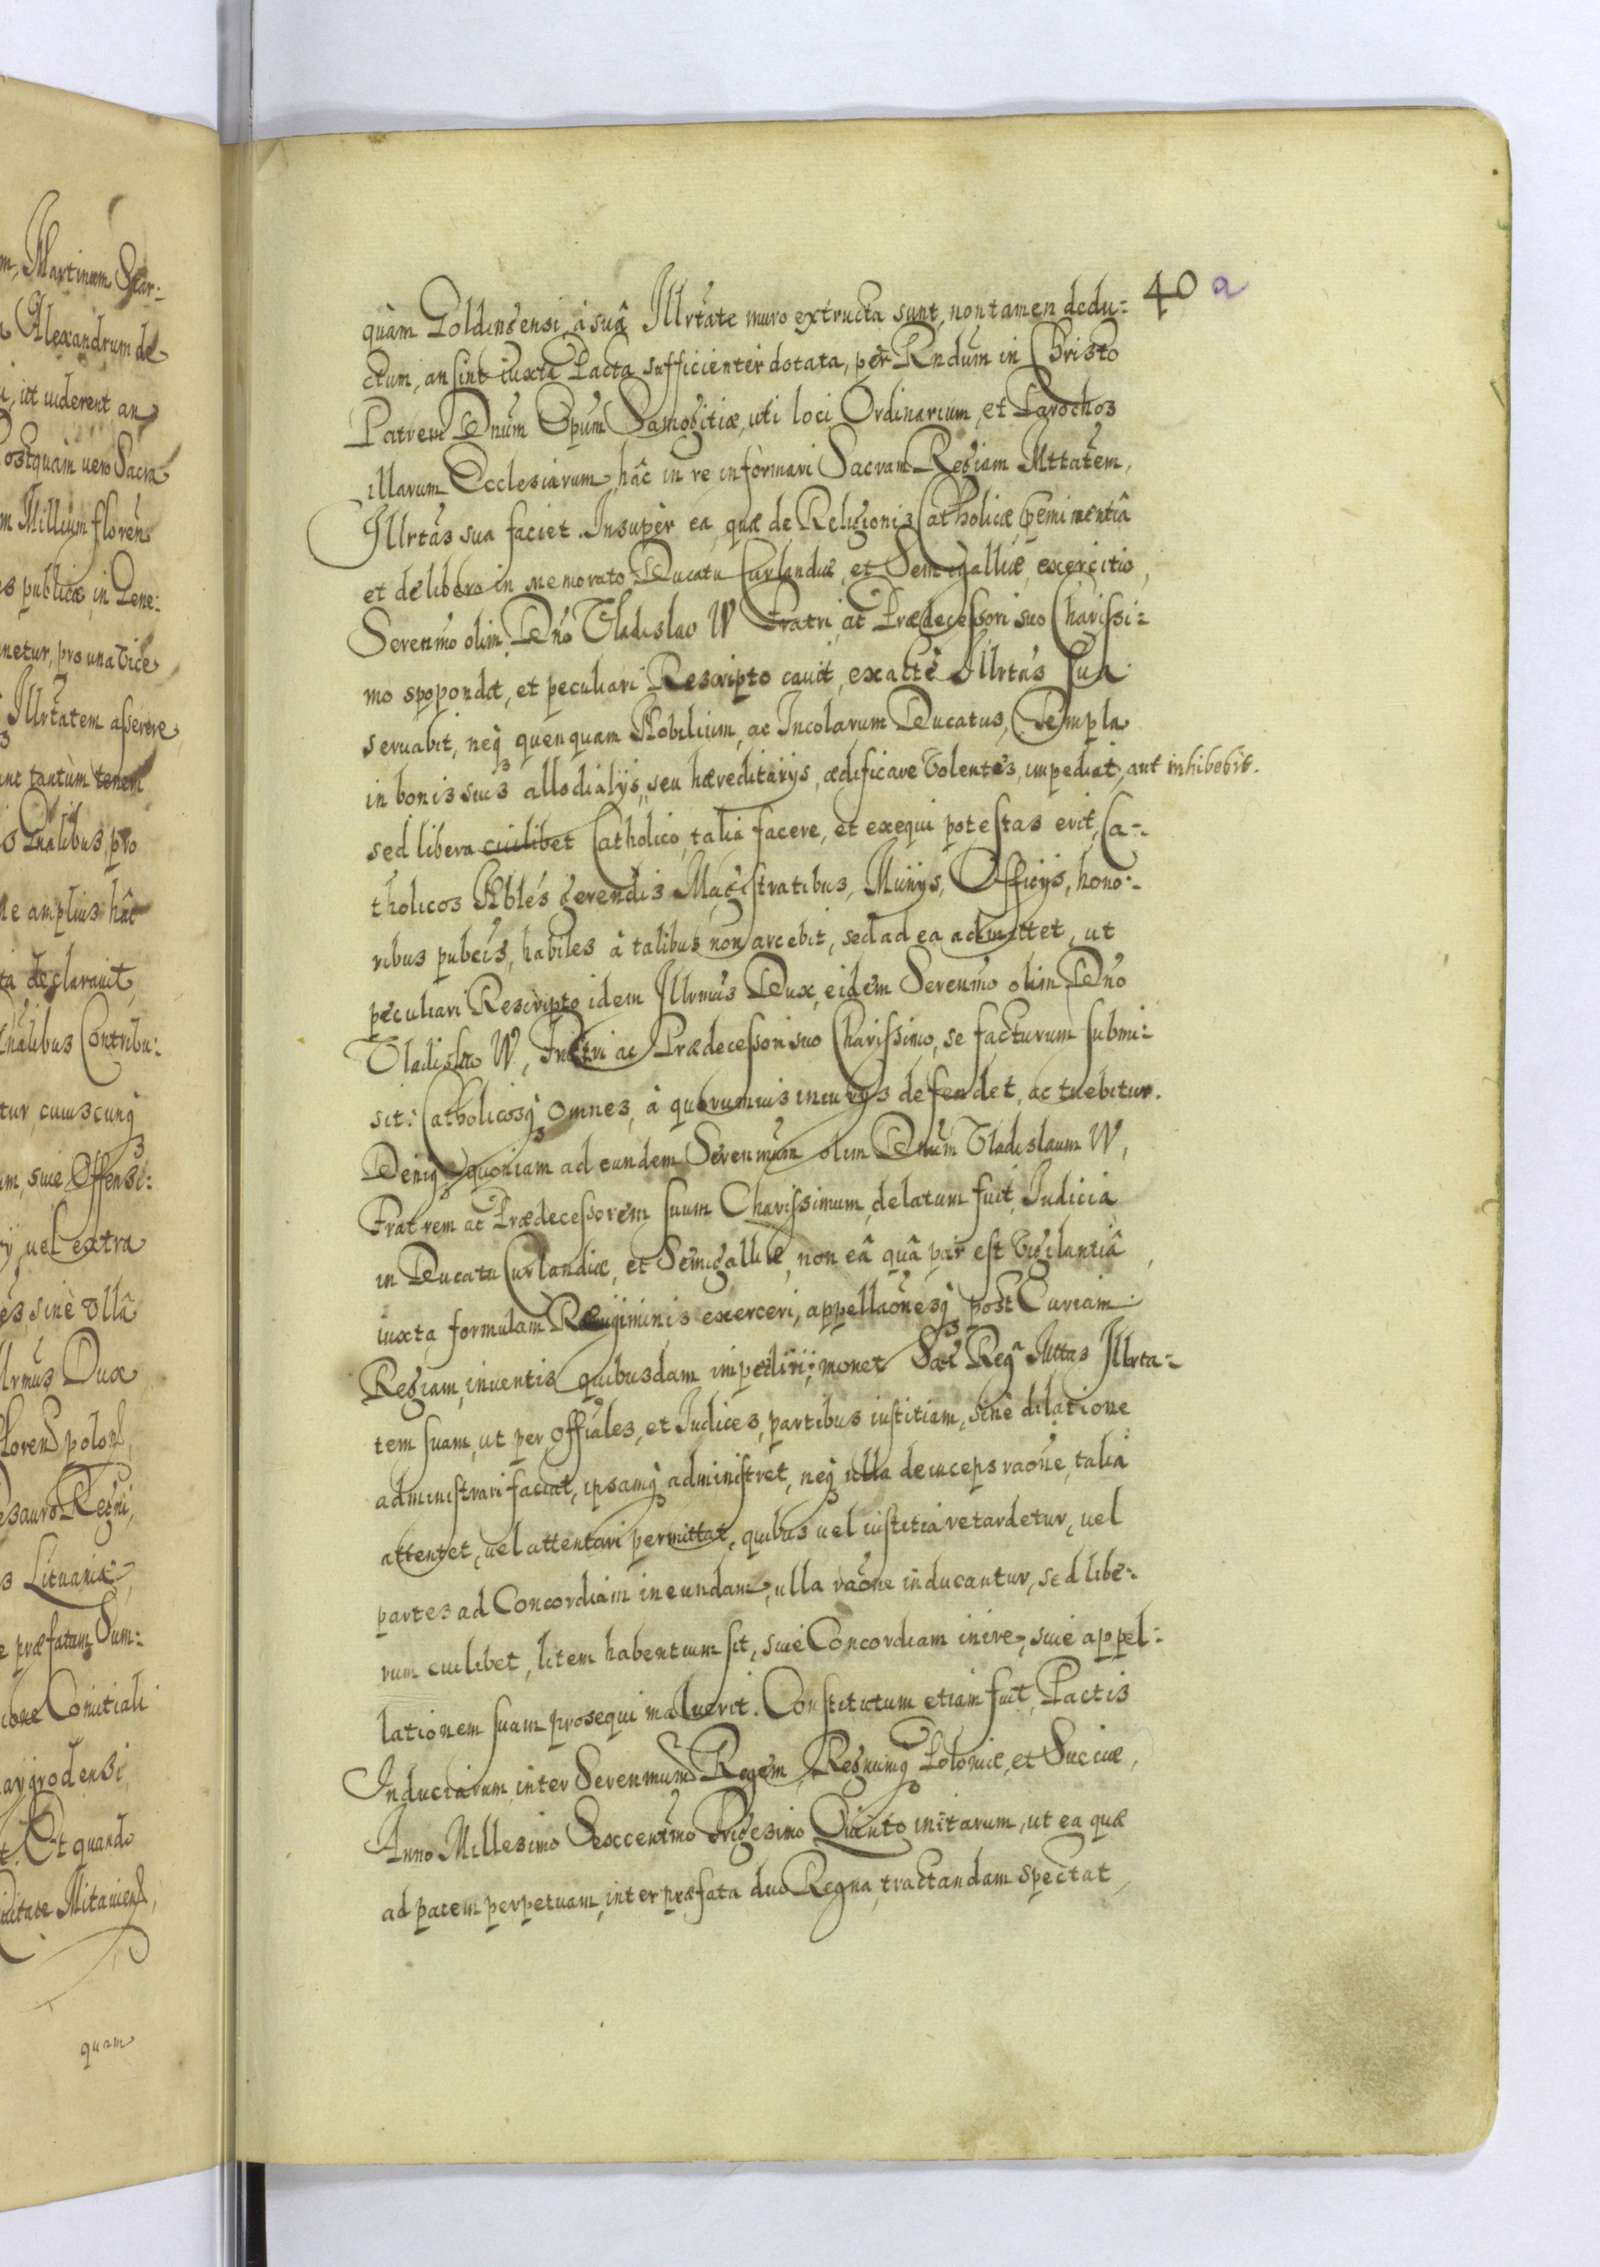 40 a
quàm Goldingensi, à suâ Illrtãte muro extructa sunt, non tamen dedu:
ctum, an sint iuxta Pacta sufficienter dotata, per Rndum in Christo
Patrem Dnum Epum Samogitiæ, uti loci Ordinarium, et Parochos
illarum Ecclesiarum, hâc in re informari Sacram Regiam Mttatem,
Illrtas sua faciet. Insuper ea, quæ de Religionis Catholicæ
et de libero in memorato Ducatu Curlandiæ, et Semigalliæ, exercitio,
Serenmo olim Dno Vladislao IV Fratri, ac Prædecessori suo Charissi:
mo spopondit, et peculiari Rescripto cauit, exacté Illrtas Sua
seruabit, neq₃ quenquam Nobilium, ac Incolarum Ducatus, Templa
in bonis suis allodialijs, seu hæreditarijs, ædificare Volentes, impediat, aut inhibebit.
sed libera cuilibet Catholico, talia facere, et exequi potestas erit, Ca:
tholicos Nbles gerendis Magistratibus, Munijs, Officijs, hono:
ribus pubcis, habiles à talibus non arcebit, sed ad ea admittet, ut
peculiari Rescripto idem Illrmus Dux, eidem Serenmo olim Dno
Vladislao IV, Fratri ac Prædecessori suo Charissimo, se facturum submi:
sit: Catholicosq₃ omnes, à quorumuis iniurijs defendet, ac tuebitur.
Deniq₃ quoniam ad eundem Serenmum olim Dnum Vladislaum IV,
Fratrem ac Prædecessorem suum Charissimum, delatum fuit, Iudicia
in Ducatu Curlandiæ, et Semigalliæ, non eâ quâ par est Vigilantiâ,
iuxta formulam Regiminis exerceri, appellaonesq₃ post Curiam
Regiam, inuentis quibusdam impediri; monet Sac Regᵃ Mttas Illrta:
tem suam, ut per Offiales, et Iudices, partibus iustitiam, sine dilatione
administrari faciat, ipsamq₃ administret, neq₃ ulla deinceps raone, talia
attentet, uel attentari permittat, quibus uel iustitia retardetur, uel
partes ad Concordiam ineundam, ulla raone inducantur, sed libe:
rum cuilibet, litem habentium sit, siue Concordiam inire, siue appel:
lationem suam prosequi maluerit. Constitutum etiam fuit, Pactis
Induciarum, inter Serenmum Regem, Regnumq₃ Poloniæ, et Sueciæ,
Anno Millesimo Sexcentmo Trigesimo Quinto initarum, ut ea quæ
ad pacem perpetuam, inter præfata duo Regna, tractandam spectat,
m, Martinum Skar:
Alexandrum de
ut uiderent an
Postquam uero Sacra
m Millium floren
s publicæ, in Pene:
netur, pro una Vice
Illrtatem asserere
unc tantùm teneri
pro
le amplius hâc
ta declarauit,
Contribu:
tur, cuiuscunq₃
um, siue Offensi:
uel extra
es, sine Vllâ
Illrmus Dux
floren polon
esauro Regni,
s Lituaniæ,
e præfatam Sum:
ione Comitiali
Et quando
Ciuitate Mitauiens,
quam